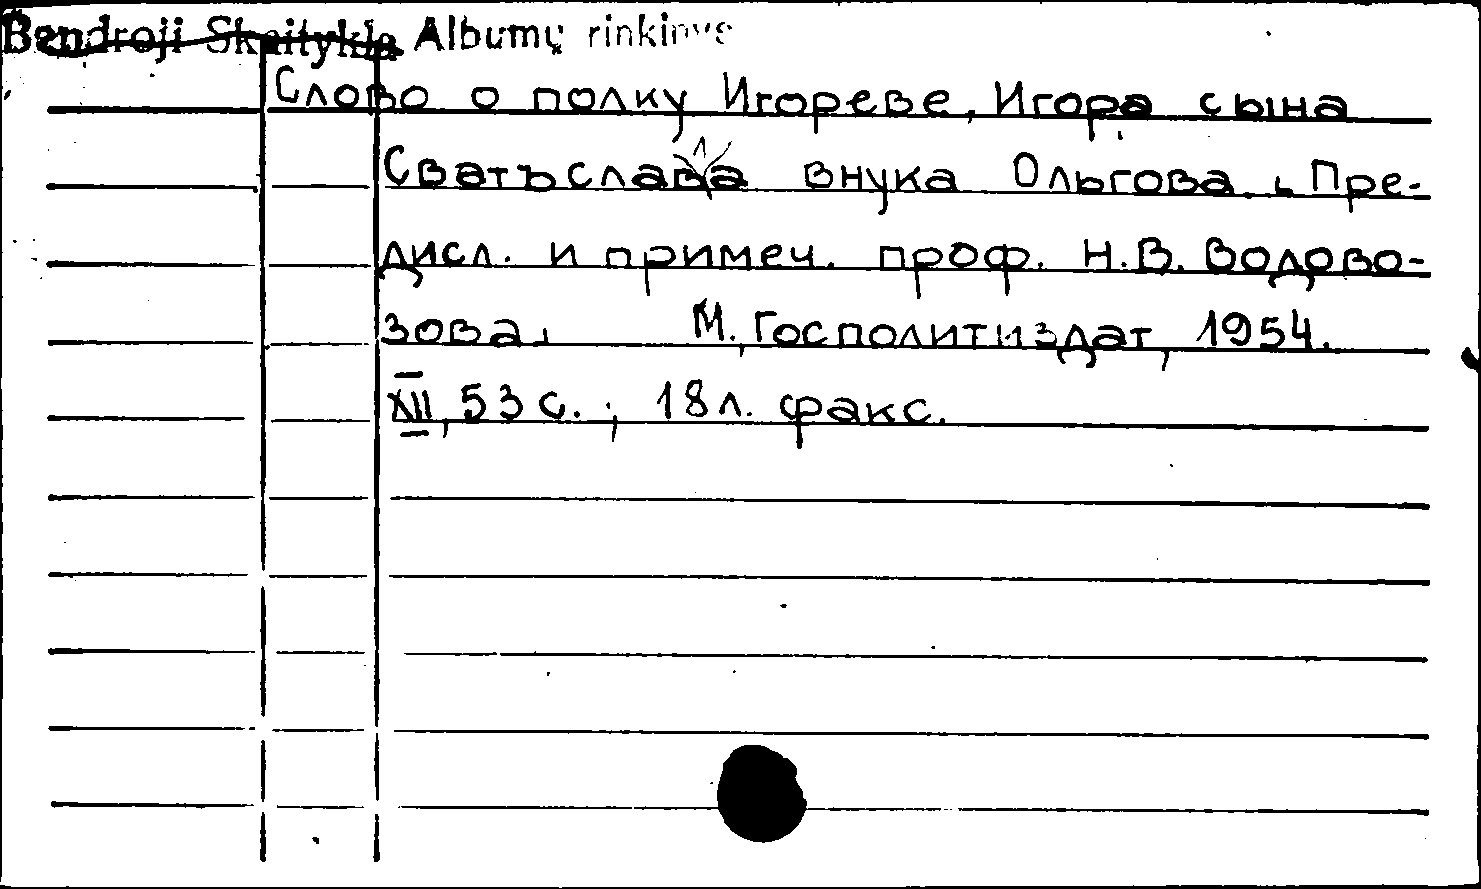 Bendroji Skaitykla Albumų rinkinys
Слово о полку Игореве, Игора сына
Сватъслава внука Ольгова. Пре-
дисл. и примеч. проф. Н.В. Водово-
зова. М., Госполитиздат, 1954.
XII, 53 с.; 18 л. факс.